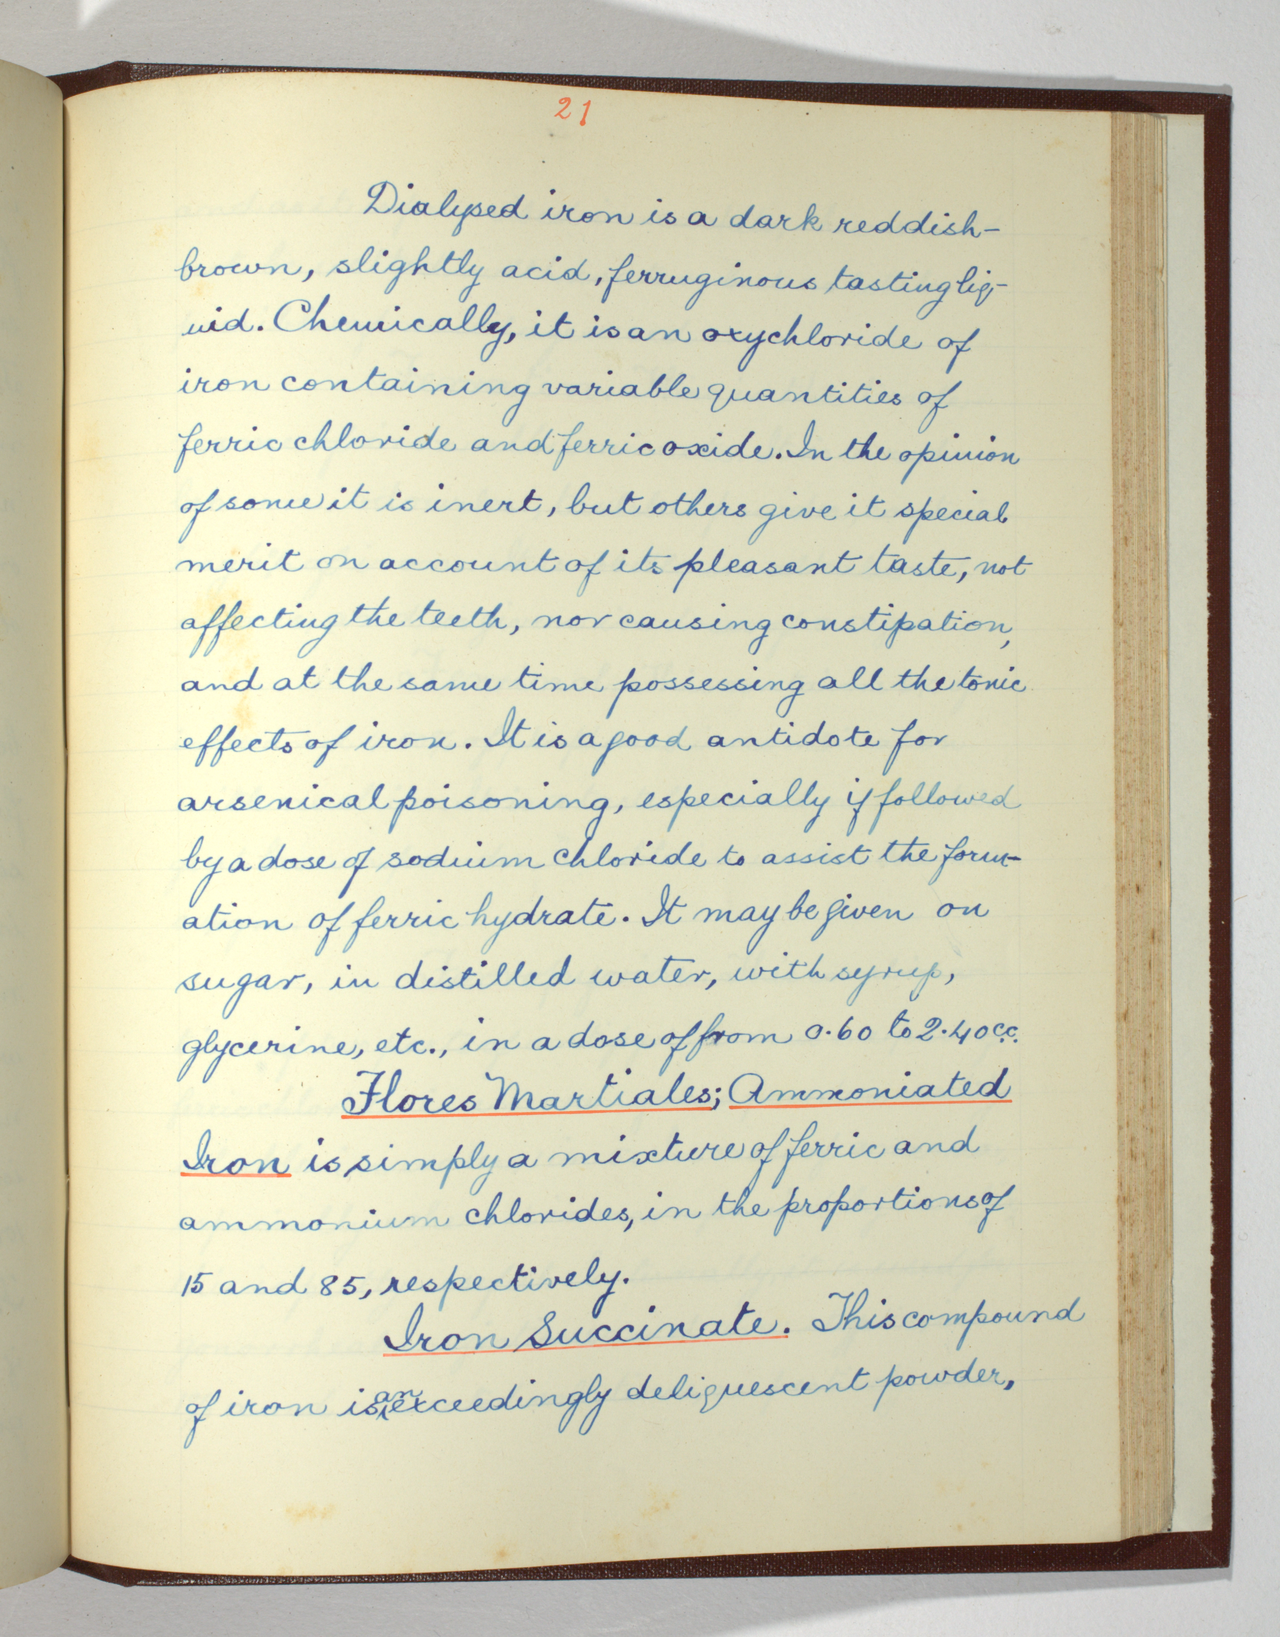 21
Dialysed iron is a dark reddish-
brown, slightly acid, ferruginous tasting liq-
uid. Chemically, it is an oxychloride of
iron containing variable quantities of
ferric chloride and ferric oxide. In the opinion
of some it is inert, but others give it special
merit on account of its pleasant taste, not
affecting the teeth, nor causing constipation,
and at the same time possessing all the tonic
effects of iron. It is a good antidote for
arsenical poisoning, especially if followed
by a dose of sodium chloride to assist the form-
ation of ferric hydrate. It may be given on
sugar, in distilled water, with syrup,
glycerine, etc., in a dose of from 0.60 to 2.40 c.c.
Flores Martiales; Ammoniated
Iron is simply a mixture of ferric and
ammonium chlorides, in the proportions of
15 and 85, respectively.
Iron Succinate. This compound
of iron is an exceedingly deliquescent powder,